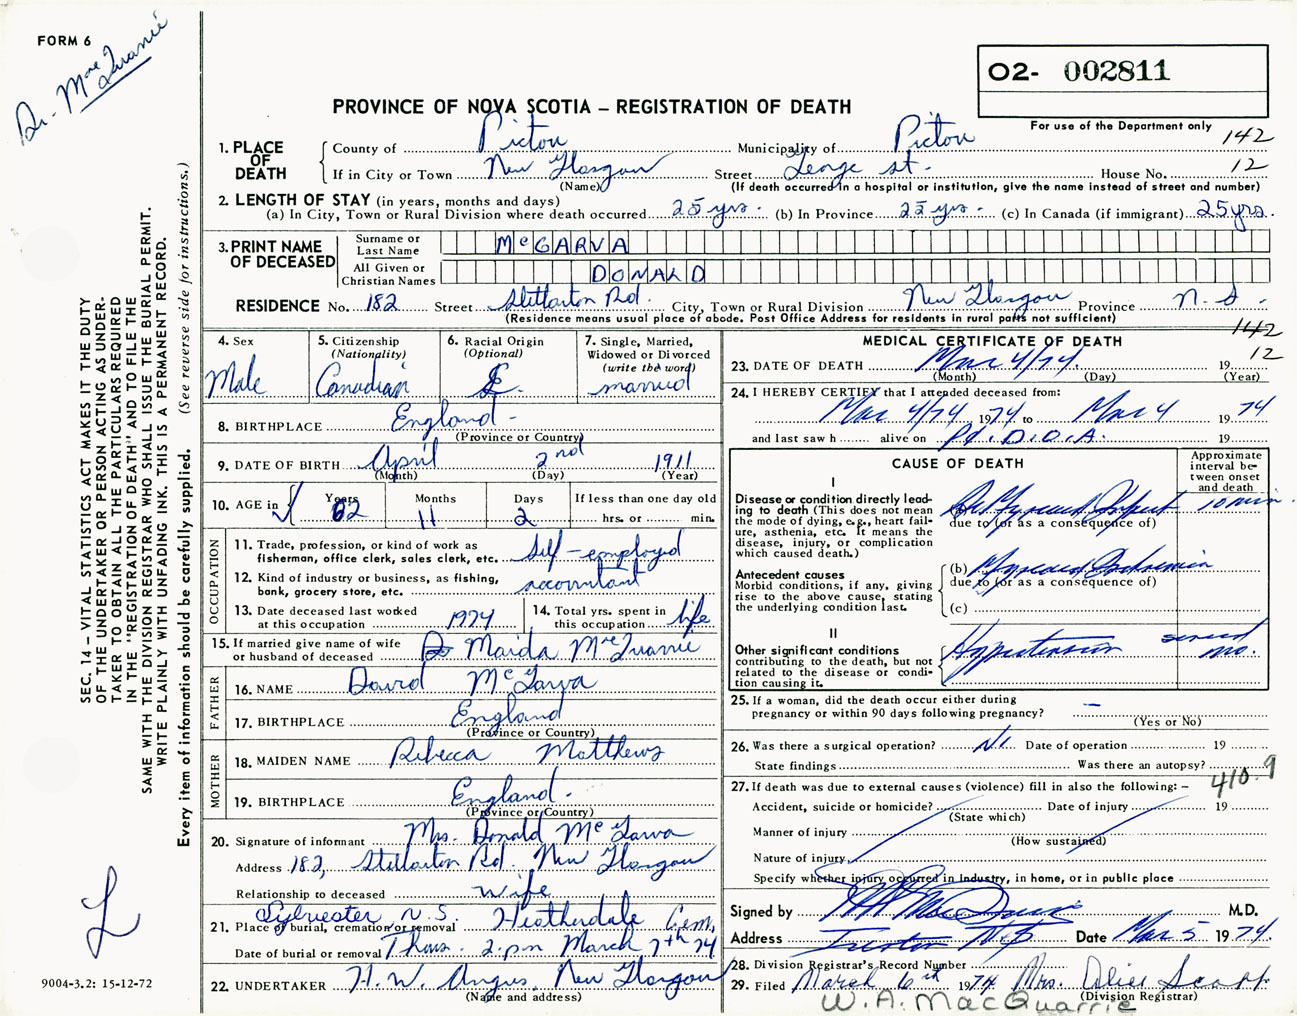 FORM 6
Dr. MacQuarrie
O2- 002811
PROVINCE OF NOVA SCOTIA – REGISTRATION OF DEATH
For use of the Department only
142
1. PLACE OF DEATH
County of Pictou Municipality of Pictou
If in City or Town New Glasgow Street George St. House No. 12
(Name) (If death occurred in a hospital or institution, give the name instead of street and number)
2. LENGTH OF STAY (in years, months and days)
(a) In City, Town or Rural Division where death occurred 25 yrs. (b) In Province 25 yrs. (c) In Canada (if immigrant) 25 yrs.
3. PRINT NAME OF DECEASED
Surname or Last Name McGARVA
All Given or Christian Names DONALD
RESIDENCE No. 182 Street Stellarton Rd. City, Town or Rural Division New Glasgow Province N.S.
(Residence means usual place of abode. Post Office Address for residents in rural parts not sufficient)
4. Sex
Male
5. Citizenship
(Nationality)
Canadian
6. Racial Origin
(Optional)
E.
7. Single, Married,
Widowed or Divorced
(write the word)
married
8. BIRTHPLACE England
(Province or Country)
9. DATE OF BIRTH April 2nd 1911
(Month) (Day) (Year)
10. AGE in Years 62 Months 11 Days 2 If less than one day old
hrs. or min.
OCCUPATION
11. Trade, profession, or kind of work as
fisherman, office clerk, sales clerk, etc. Self-employed
12. Kind of industry or business, as fishing,
bank, grocery store, etc. accountant
13. Date deceased last worked
at this occupation 1974
14. Total yrs. spent in
this occupation life
15. If married give name of wife
or husband of deceased Dr Maida MacQuarrie
FATHER
16. NAME David McGarva
17. BIRTHPLACE England
(Province or Country)
MOTHER
18. MAIDEN NAME Rebecca Matthews
19. BIRTHPLACE England.
(Province or Country)
20. Signature of informant Mrs. Donald McGarva
Address 182, Stellarton Rd. New Glasgow
Relationship to deceased Wife
Sylvester N.S. Heatherdale Cem.
21. Place of burial, cremation or removal
Date of burial or removal Thurs. 2 p.m March 7th 74
22. UNDERTAKER H. W. Angus, New Glasgow
(Name and address)
142
12
MEDICAL CERTIFICATE OF DEATH
23. DATE OF DEATH Mar 4/74. 19
(Month) (Day) (Year)
24. I HEREBY CERTIFY that I attended deceased from:
Mar 4/74 1974 to Mar 4 1974
and last saw h alive on Pt. D.O.A. 19
CAUSE OF DEATH
Approximate interval between onset and death
I
Disease or condition directly leading to death (This does not mean the mode of dying, e.g., heart failure, asthenia, etc. It means the disease, injury, or complication which caused death.)
(a) 10 min.
due to (or as a consequence of)
Antecedent causes
Morbid conditions, if any, giving rise to the above cause, stating the underlying condition last.
(b) Myocard Ischemia
due to (or as a consequence of)
(c)
II
Other significant conditions
contributing to the death, but not related to the disease or condition causing it.
Hypertension several mo.
25. If a woman, did the death occur either during
pregnancy or within 90 days following pregnancy? –
(Yes or No)
26. Was there a surgical operation? No. Date of operation 19
State findings Was there an autopsy?
410.9
27. If death was due to external causes (violence) fill in also the following: –
Accident, suicide or homicide? Date of injury 19
(State which)
Manner of injury
(How sustained)
Nature of injury
Specify whether injury occurred in industry, in home, or in public place
Signed by M.D.
Address Trenton N.S. Date Mar 5 1974.
28. Division Registrar's Record Number
29. Filed March 6th 1974 Mrs. Alice Scott
(Division Registrar)
W.A. MacQuarrie
SEC. 14 – VITAL STATISTICS ACT MAKES IT THE DUTY
OF THE UNDERTAKER OR PERSON ACTING AS UNDER-
TAKER TO OBTAIN ALL THE PARTICULARS REQUIRED
IN THE "REGISTRATION OF DEATH" AND TO FILE THE
SAME WITH THE DIVISION REGISTRAR WHO SHALL ISSUE THE BURIAL PERMIT.
WRITE PLAINLY WITH UNFADING INK. THIS IS A PERMANENT RECORD.
Every item of information should be carefully supplied. (See reverse side for instructions.)
L
9004-3.2: 15-12-72